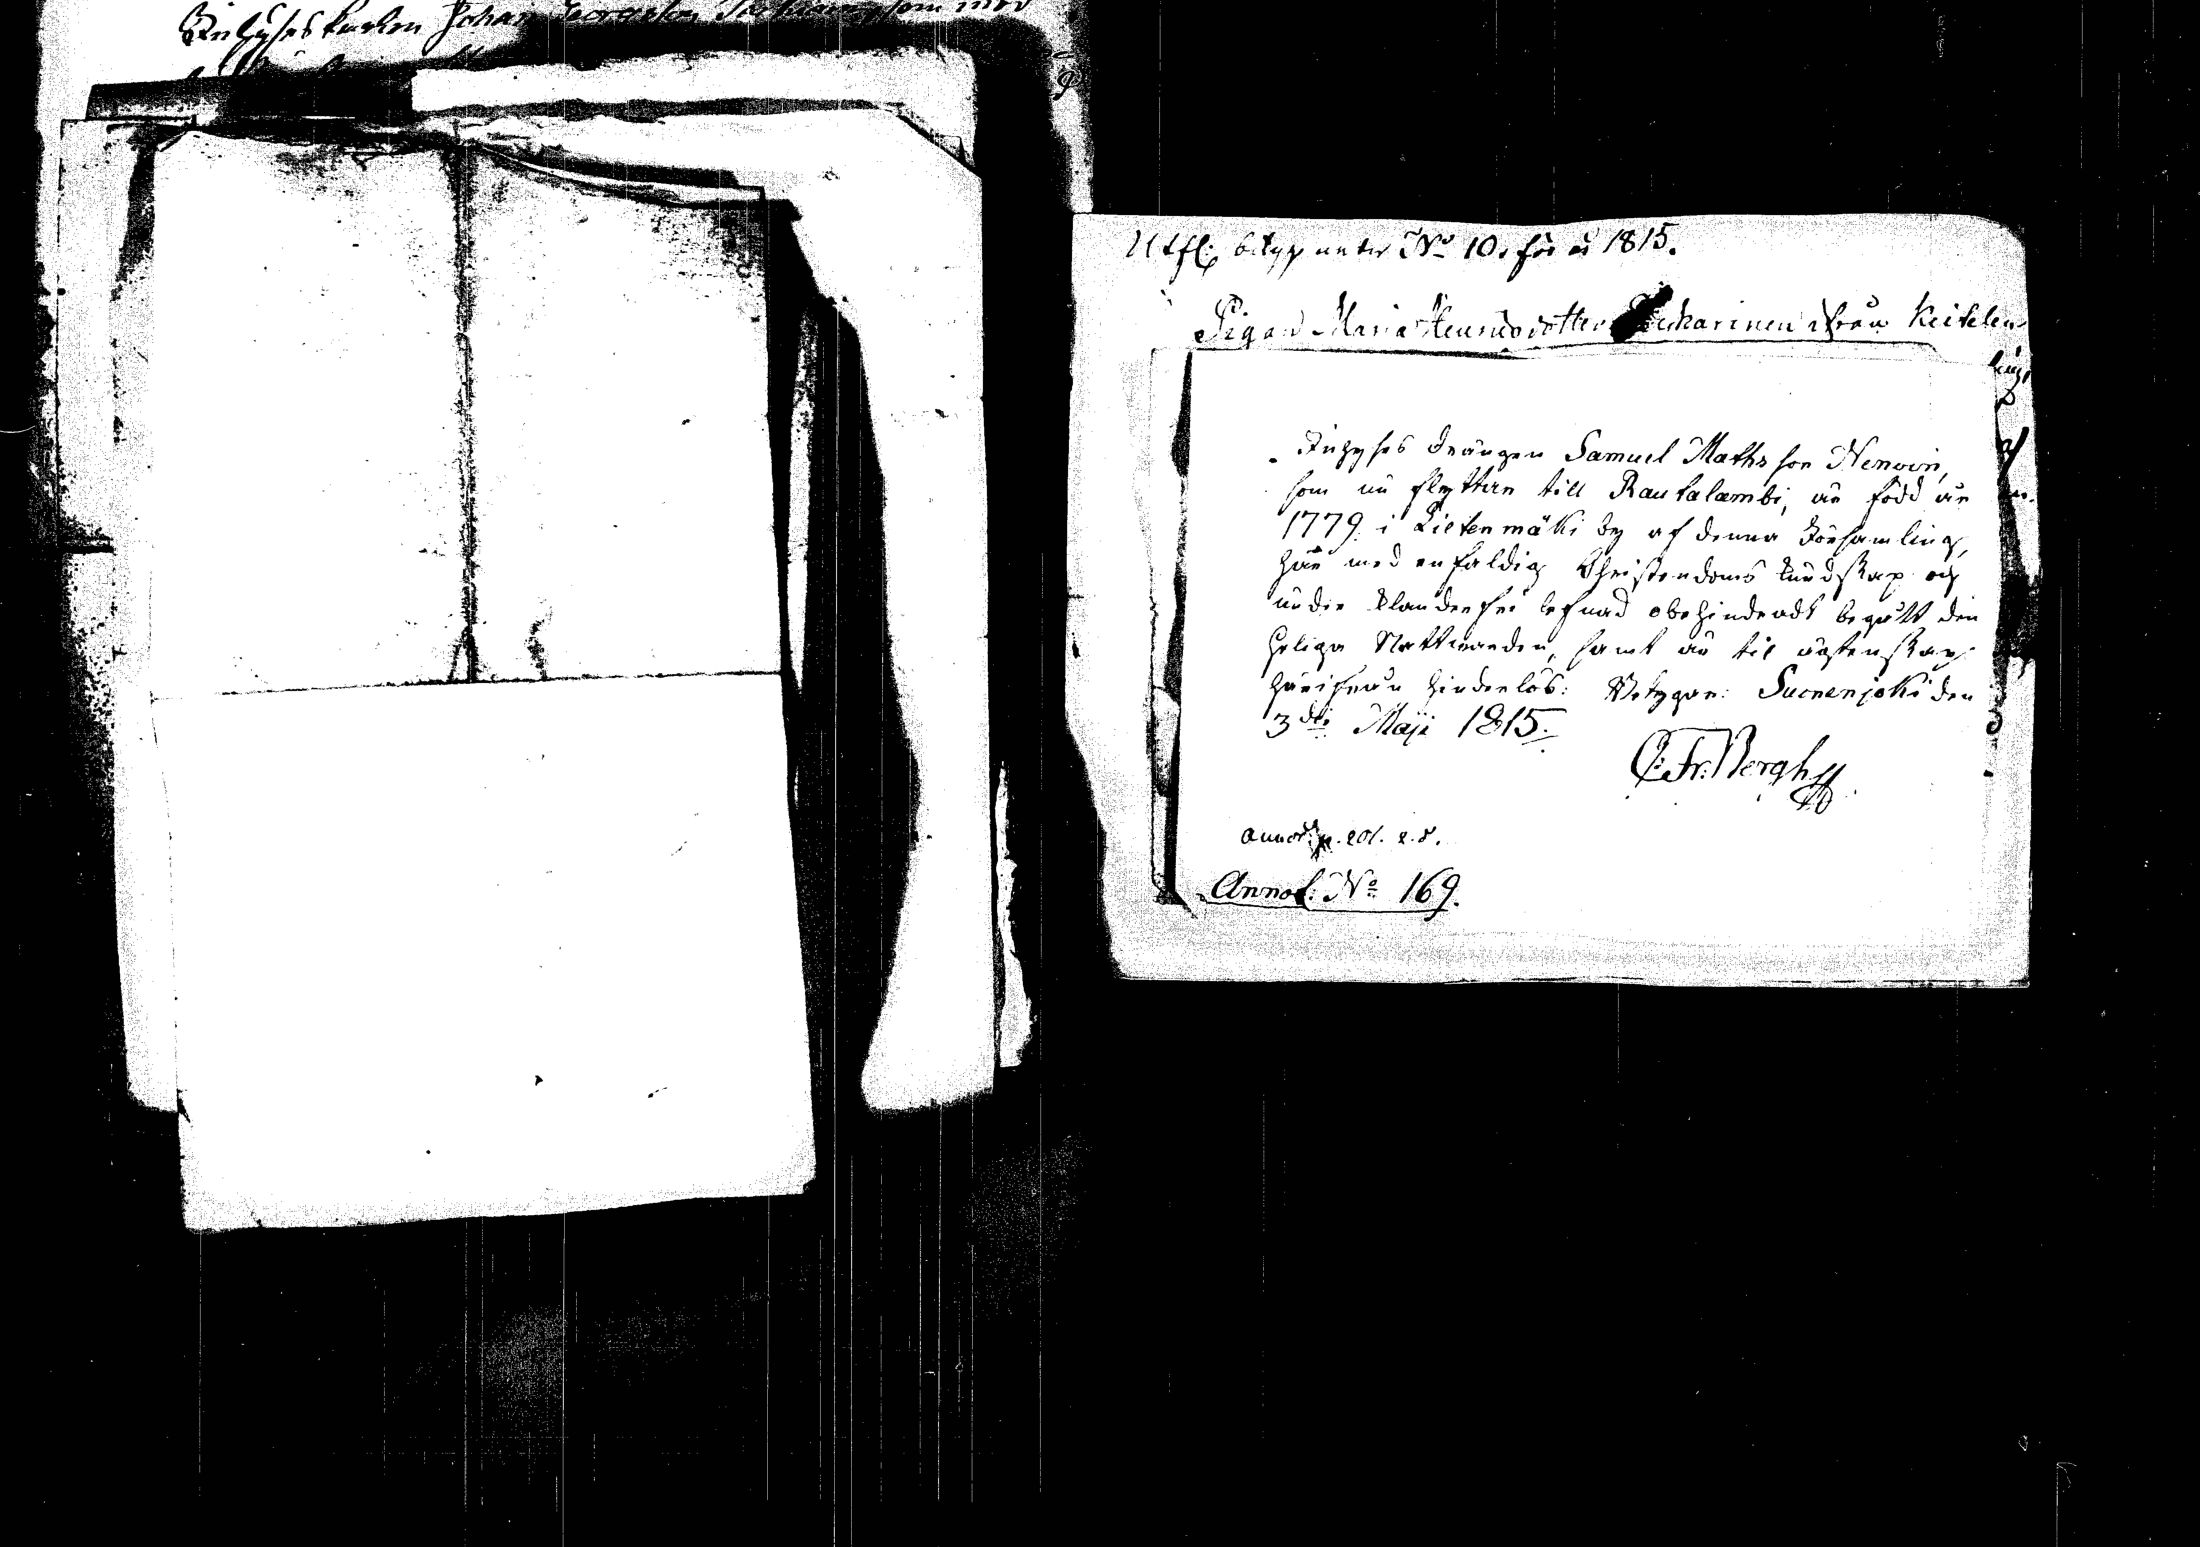 Inhyses karlen Johan Georgsson som med
Utfl: betyg under No 10. för år 1815.
Pigan Maria Henricsdotter ifrån Keitelen
Inhyses drängen Samuel Mathsson Nenoin,
som nu flyttar till Rautalambi, är född år
1779. i Lietenmäki by af denna Församling,
har med enfaldig Christendoms kundskap och
under klanderfri lefnad obehindradt begått den
heliga Nattvarden, samt är til ägtenskap
härifrån hinderlös: Betygar: Suonenjoki den
3dje Maji 1815.
C: Fr: Bergh
Annot: p. 201.
Annot: No 169.